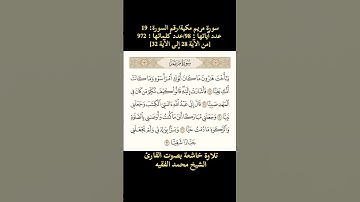 سورة مريم مكية/رقم السورة: 19
عدد آياتها : 98/عدد كلماتها : 972
[من الآية 28 إلى الآية 32]
سورة مريم
يَٰٓأُخْتَ هَٰرُونَ مَا كَانَ أَبُوكِ ٱمْرَأَ سَوْءٍ وَمَا كَانَتْ
أُمُّكِ بَغِيًّا ۝ فَأَشَارَتْ إِلَيْهِ قَالُوا۟ كَيْفَ نُكَلِّمُ مَن كَانَ فِى
ٱلْمَهْدِ صَبِيًّا ۝ قَالَ إِنِّى عَبْدُ ٱللَّهِ ءَاتَىٰنِىَ ٱلْكِتَٰبَ وَجَعَلَنِى
نَبِيًّا ۝ وَجَعَلَنِى مُبَارَكًا أَيْنَ مَا كُنتُ وَأَوْصَٰنِى بِٱلصَّلَوٰةِ
وَٱلزَّكَوٰةِ مَا دُمْتُ حَيًّا ۝ وَبَرًّۢا بِوَٰلِدَتِى وَلَمْ يَجْعَلْنِى
جَبَّارًا شَقِيًّا ۝
تلاوة خاشعة بصوت القارئ
الشيخ محمد الفقيه